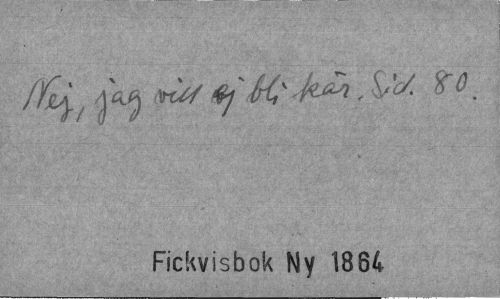 Nej, jag vill ej bli kär. Sid. 80.
Fickvisbok Ny 1864